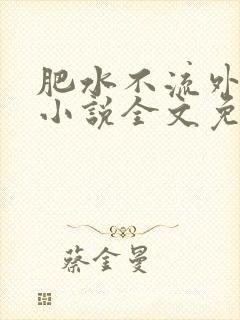 肥水不流外
小説全文免
蔡金曼